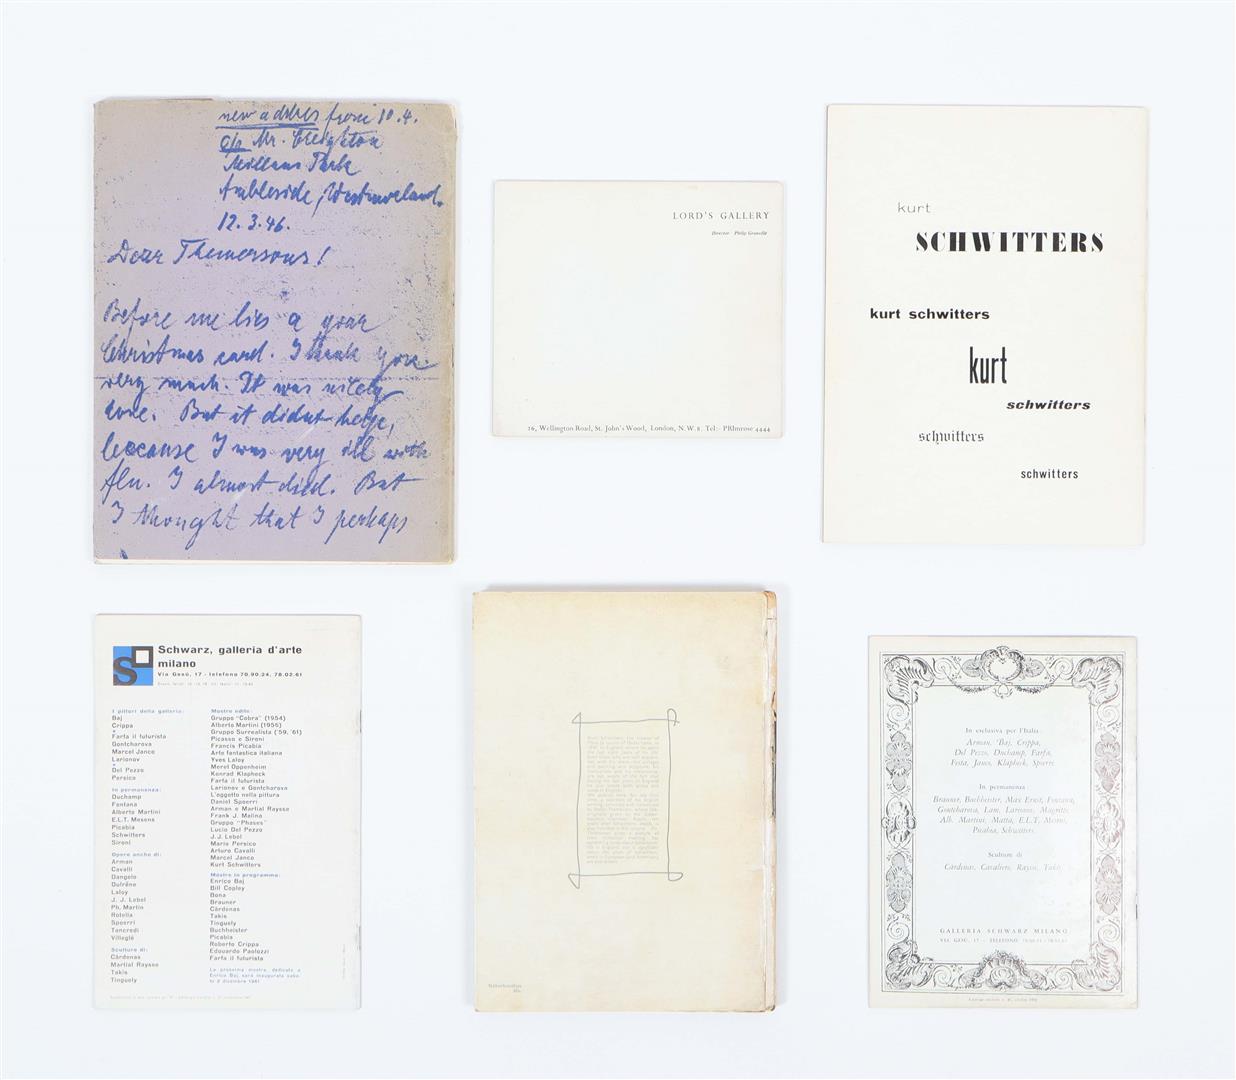 new address from 10.4.
c/o Mr. Creighton
Millans Park
Ambleside, Westmoreland.
12.3.46.
Dear Themersons!
Before me lies a your
Christmas card. I thank you
very much. It was nicely
done. But it didnt help,
because I was very ill with
flu. I almost died. But
I thought that I perhaps
LORD'S GALLERY
Director Philip Granville
26, Wellington Road, St. John's Wood, London, N.W.8. Tel:- PRImrose 4444
kurt
SCHWITTERS
kurt schwitters
kurt
schwitters
schwitters
schwitters
S
Schwarz, galleria d'arte
milano
Via Gesù, 17 - telefono 70.90.24, 78.02.61
I pittori della galleria:
Baj
Crippa
Farfa il futurista
Gontcharova
Marcel Janco
Larionov
Del Pezzo
Persico
In permanenza:
Duchamp
Fontana
Alberto Martini
E.L.T. Mesens
Picabia
Schwitters
Sironi
Opere anche di:
Arman
Cavalli
Dangelo
Dufrêne
Laloy
J. J. Lebel
Ph. Martin
Rotella
Spoerri
Tancredi
Villeglé
Sculture di:
Càrdenas
Martial Raysse
Takis
Tinguely
Mostre edite:
Gruppo "Cobra" (1954)
Alberto Martini (1956)
Gruppo Surrealista ('59, '61)
Picasso e Sironi
Francis Picabia
Arte fantastica italiana
Yves Laloy
Meret Oppenheim
Konrad Klapheck
Farfa il futurista
Larionov e Gontcharova
L'oggetto nella pittura
Daniel Spoerri
Arman e Martial Raysse
Frank J. Malina
Gruppo "Phases"
Lucio Del Pezzo
J.J. Lebel
Mario Persico
Arturo Cavalli
Marcel Janco
Kurt Schwitters
Mostre in programma:
Enrico Baj
Bill Copley
Bona
Brauner
Càrdenas
Takis
Tinguely
Buchheister
Picabia
Roberto Crippa
Edouardo Paolozzi
Farfa il futurista
La prossima mostra, dedicata a
Enrico Baj, sarà inaugurata sabato
2 dicembre 1961
In esclusiva per l'Italia:
Arman, Baj, Crippa,
Del Pezzo, Duchamp, Farfa,
Festa, Janco, Klapheck, Spoerri
In permanenza
Brauner, Buchheister, Max Ernst, Fontana,
Gontcharova, Lam, Larionov, Magritte,
Alb. Martini, Matta, E.L.T. Mesens,
Picabia, Schwitters
Sculture di
Càrdenas, Cavaliere, Raysse, Takis
GALLERIA SCHWARZ MILANO
VIA GESÙ, 17 - TELEFONO